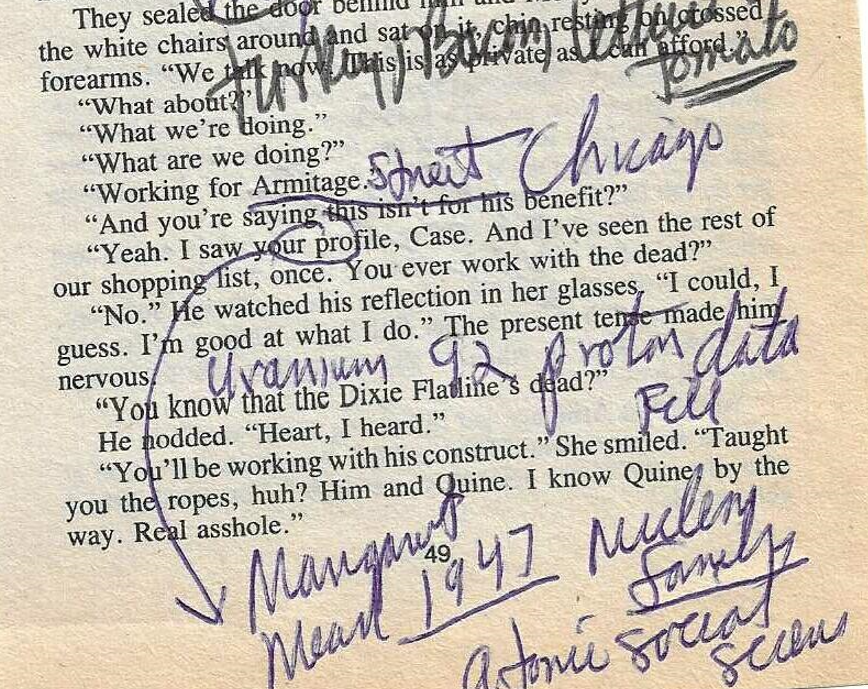 They sealed the door behind
the white chairs around and sat on it, chin resting on crossed
forearms. “We talk now. This is as private as I can afford.”
Turkey, Bacon, lettuce
Tomato
“What about?”
“What we're doing.”
“What are we doing?”
“Working for Armitage.”
Street Chicago
“And you're saying this isn't for his benefit?”
“Yeah. I saw your profile, Case. And I've seen the rest of
our shopping list, once. You ever work with the dead?”
“No.” He watched his reflection in her glasses. “I could, I
guess. I'm good at what I do.” The present tense made him
nervous.
Uranium 92 proton data
“You know that the Dixie Flatline's dead?”
He nodded. “Heart, I heard.”
“You'll be working with his construct.” She smiled. “Taught
you the ropes, huh? Him and Quine. I know Quine, by the
way. Real asshole.”
49
Margaret
Mead 1947
Nuclear
family
Atomic social